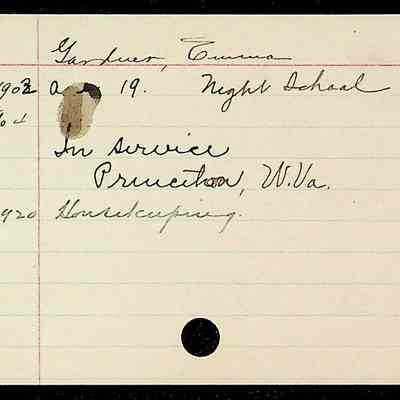 Gardner, Emma
1903 a 19. Night School
In service
Princeton, W.Va.
1920 Housekeeping.